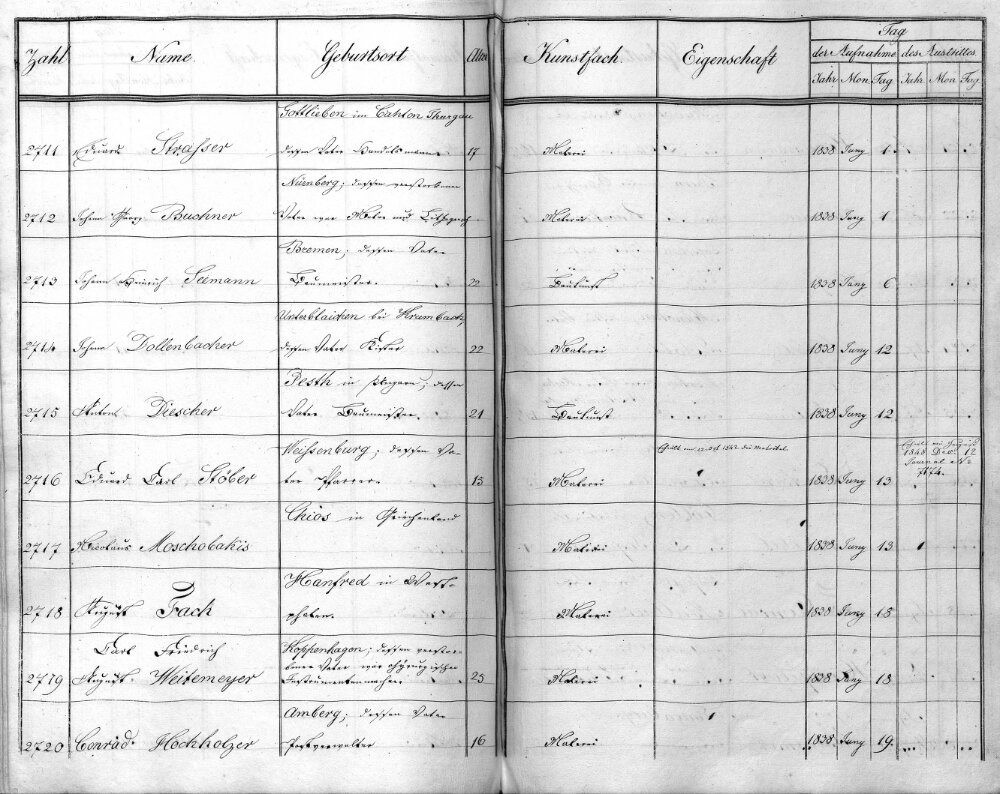 Tag
Zahl Name Geburtsort Alter Kunstfach Eigenschaft der Aufnahme des Austrittes
Jahr Mon Tag Jahr Mon Tag
Gottlieben im Canton Thurgau
2711 Eduard Strasser dessen Vater Handelsmann 17 Malerei 1838 Juny 1
Nürnberg; dessen verstorbener
2712 Johann Georg Buchner Vater war Maler und Lithograph Malerei 1838 Juny 1
Bremen; dessen Vater
2713 Johann Heinrich Seemann Baumeister 22 Baukunst 1838 Juny 6
Unterblaichen bei Krumbach,
2714 Johann Dollenbacher dessen Vater 22 Malerei 1838 Juny 12
Pesth in Ungarn; dessen
2715 Anton Diescher Vater Baumeister 21 Baukunst 1838 Juny 12
Weissenburg; dessen Va-
2716 Eduard Carl Stöber ter Pfarrer 13 Malerei 1838 Juny 13
Chios in Griechenland
2717 Nicolaus Moschobakis Malerei 1838 Juny 13
Hanfred in West-
2718 August Trach phalen Malerei 1838 Juny 18
Carl Friedrich Koppenhagen; dessen verstor-
bener Vater war chyrurgischer
2719 August Weitemeyer Instrumentenmacher 23 Malerei 1838 Juny 18
Amberg; dessen Vater
2720 Conrad Hochholzer Postverwalter 16 Malerei 1838 Juny 19